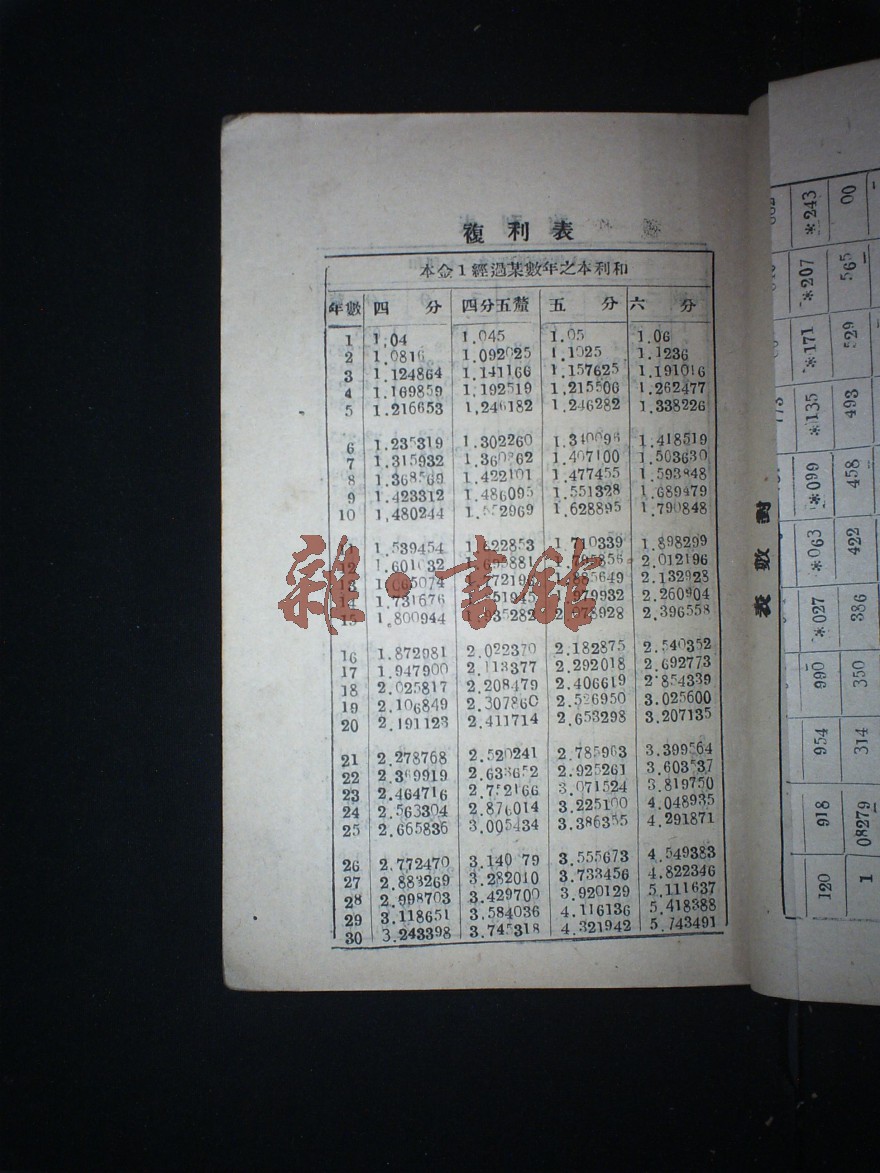 複利表
本金1經過某數年之本利和
年數 四分 四分五釐 五分 六分
1 1.04 1.045 1.05 1.06
2 1.0816 1.092025 1.1025 1.1236
3 1.124864 1.141166 1.157625 1.191016
4 1.169859 1.192519 1.215506 1.262477
5 1.216653 1.246182 1.246282 1.338226
6 1.235319 1.302260 1.340096 1.418519
7 1.315932 1.360862 1.407100 1.503630
8 1.368569 1.422101 1.477455 1.593848
9 1.423312 1.486095 1.551328 1.689479
10 1.480244 1.552969 1.628895 1.790848
1.539454 1.622853 1.710339 1.898299
12 1.601032 1.795856 2.012196
13 2.132928
14 1.731676 2.260904
15 1.800944 2.396558
16 1.872981 2.022370 2.182875 2.540352
17 1.947900 2.113377 2.292018 2.692773
18 2.025817 2.208479 2.406619 2.854339
19 2.106849 2.307860 2.526950 3.025600
20 2.191123 2.411714 2.653298 3.207135
21 2.278768 2.520241 2.785963 3.399564
22 2.369919 2.633652 2.925261 3.603537
23 2.464716 2.752166 3.071524 3.819750
24 2.563304 2.876014 3.225100 4.048935
25 2.665836 3.005434 3.386355 4.291871
26 2.772470 3.140 79 3.555673 4.549383
27 2.883269 3.282010 3.733456 4.822346
28 2.998703 3.429700 3.920129 5.111637
29 3.118651 3.584036 4.116136 5.418388
30 3.243398 3.745318 4.321942 5.743491
雜·書館
對數表
120 918 954 990 *027 *063 *099 *135 *171 *207 *243
1 08279 314 350 386 422 458 493 529 565 00